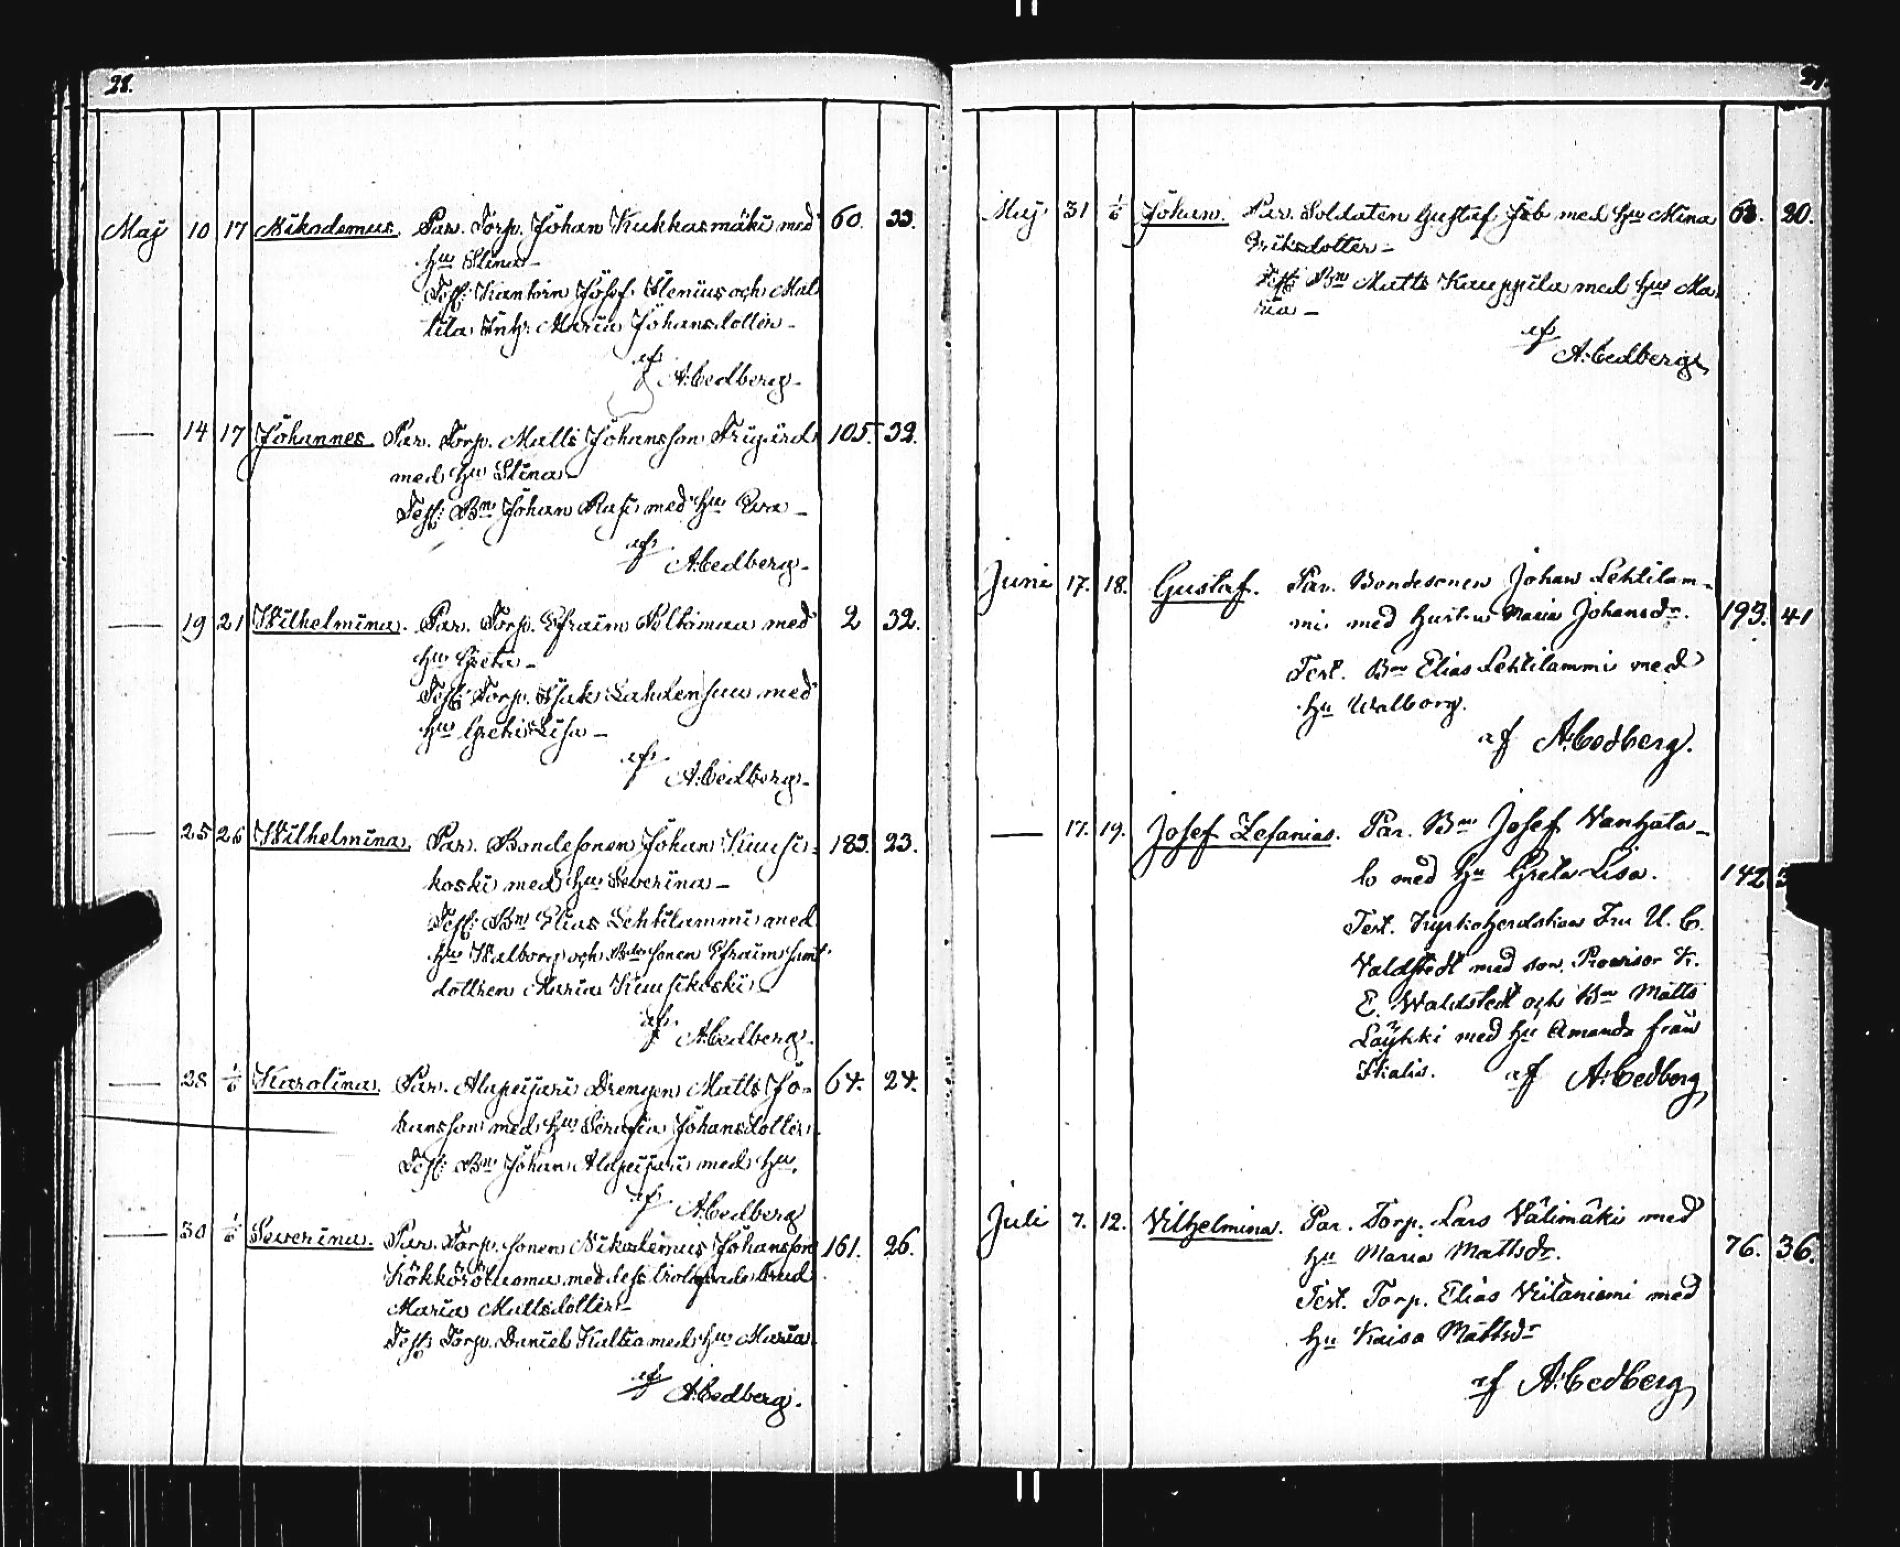 28.
Maj 10 17 Nikodemus. Par. Torp. Johan Kukkasmäki med 60. 33.
hu Stina
Test: Kantorn Josef Stenius och Mat
tila Inh: Maria Johansdotter
af
A: Cedberg
— 14 17 Johannes. Par. Torp. Matts Johansson Frigård 105. 32.
med hu Stina
Test: Bn Johan Rasi med hu Eva
af
A: Cedberg
— 19 21 Wilhelmina. Par. Torp. Efraim Peltomaa med 2 32.
hu Greta
Test: Torp. Isak Lahdensuu med
hu Greta Lisa
af
A: Cedberg
— 25 26 Wilhelmina. Par. Bondesonen Johan Kuusi- 183. 23.
koski med hu Severina
Test: Bn Elias Lehtilammi med
hu Walborg och Bdesonen Efraim samt
dottren Maria Kuusikoski
af
A: Cedberg
— 28 1/6 Karolina. Par. Alapeijari Drengen Matts Jo- 64. 24.
hansson med hu Serafia Johansdotter
Test: Bn Johan Alapeijari med hu
af
A: Cedberg
— 30 1/6 Severina. Par. Torp. sonen Nikodemus Johansson 161. 26.
Kökköröluoma med dess trolofvade brud
Maria Mattsdotter
Test: Torp. Daniel Kaltia med hu Maria
af
A: Cedberg.
Maj 31 1/6 Johan. Par. Soldaten Gustaf Job med hu Mina 20.
Eriksdotter
Test: Bn Matts Kauppila med hu Ma
ria
af
A: Cedberg
Juni 17. 18. Gustaf. Par. Bondesonen Johan Lehtilam-
mi med hustru Maria Johansdr. 193. 41
Test. Bn Elias Lehtilammi med
hu Walborg.
af A: Cedberg.
— 17. 19. Josef Zefanias. Par. Bn Josef Vanhata-
lo med hu Greta Lisa. 142
Test. Kyrkoherdskan Fru U. C.
Valdstedt med son Provisor K.
E. Waldstedt och Bn Matts
Löyhki med hu Amanda från
Ikalis. af A: Cedberg
Juli 7. 12. Vilhelmina. Par. Torp. Lars Välimäki med
hu Maria Mattsdr. 76. 36.
Test. Torp. Elias Viitaniemi med
hu Kaisa Mattsdr
af A: Cedberg